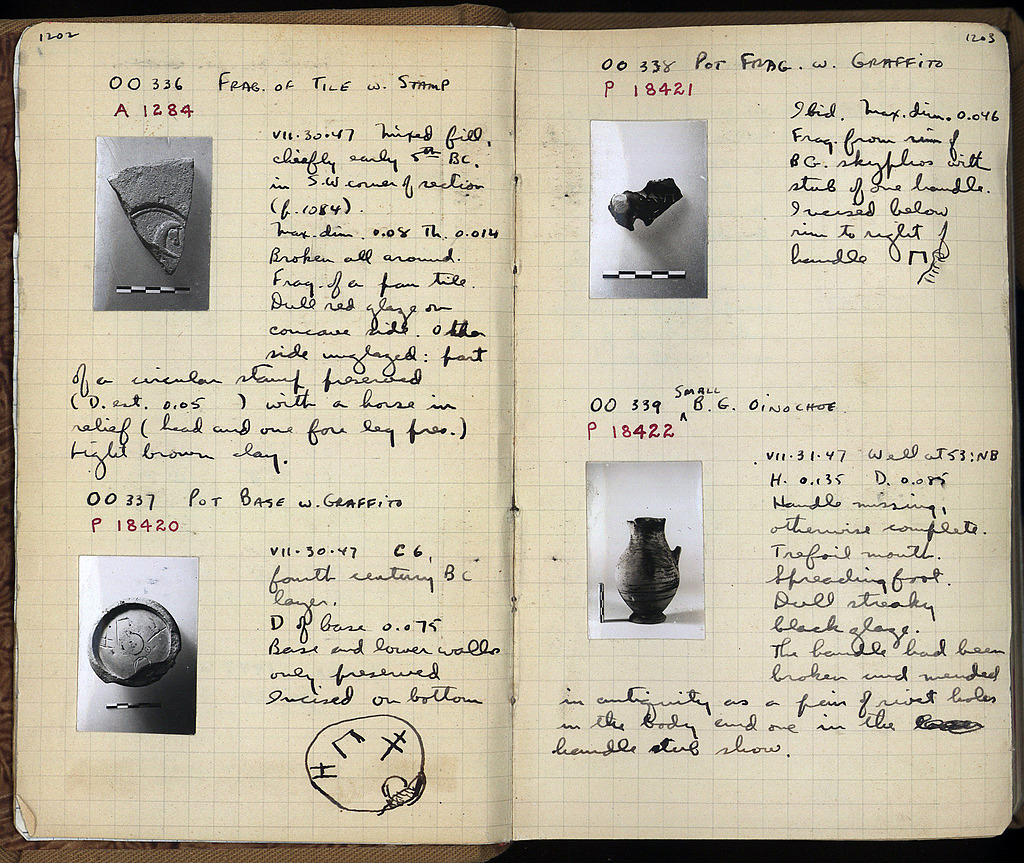 1202
OO 336 FRAG. OF TILE W. STAMP
A 1284
VII·30·47 Mixed fill,
chiefly early 5th BC.
in S.W corner of section
(p. 1084).
Max. dim. 0.08 Th. 0.014
Broken all around.
Frag. of a pan tile.
Dull red glaze on
concave side. Other
side unglazed: part
of a circular stamp preserved
(D. est. 0.05 ) with a horse in
relief (head and one fore leg pres.)
Light brown clay.
OO 337 POT BASE W. GRAFFITO
P 18420
VII·30·47 C6,
fourth century BC
layer.
D of base 0.075
Base and lower walls
only preserved
Incised on bottom
1203
OO 338 POT FRAG. W. GRAFFITO
P 18421
Ibid. Max. dim. 0.046
Frag. from rim of
BG. skyphos with
stub of one handle.
Incised below
rim to right of
handle
OO 339 SMALL B. G. OINOCHOE
P 18422
VII·31·47 Well at 53:NB
H. 0.135 D. 0.085
Handle missing,
otherwise complete.
Trefoil mouth.
Spreading foot.
Dull streaky
black glaze.
The handle had been
broken and mended
in antiquity as a pair of rivet holes
in the body and one in the
handle stub show.